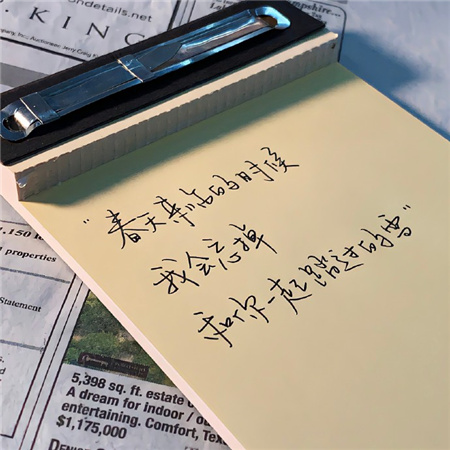 ondetails.net
KING
"春天来临的时候
我会忘掉
和你一起踏过的雪"
properties
Statement
5,398 sq. ft. estate
A dream for indoor /
entertaining. Comfort, Tex
$1,175,000